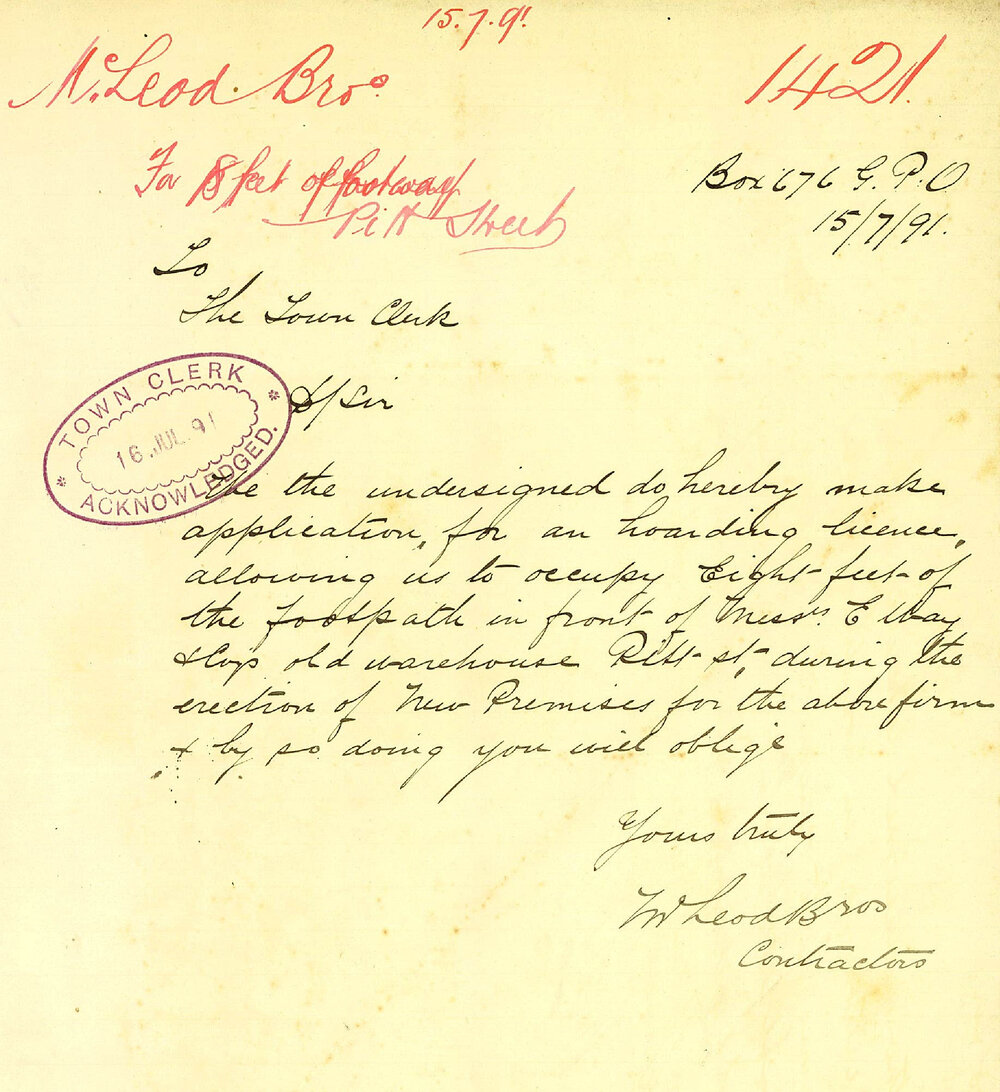 15.7.91
McLeod. Bros
1421.
For 8 feet of footway
Pitt Street
Box 676 G.P.O
15/7/91.
To
The Town Clerk
TOWN CLERK
16 JUL. 91
ACKNOWLEDGED.
D/Sir
We the undersigned do hereby make
application, for an hoarding licence,
allowing us to occupy Eight feet of
the footspath in front of Messrs. E Way
& Cos old warehouse Pitt st, during the
erection of New Premises for the above firm
& by so doing you will oblige
Yours truly
McLeod Bros
Contractors